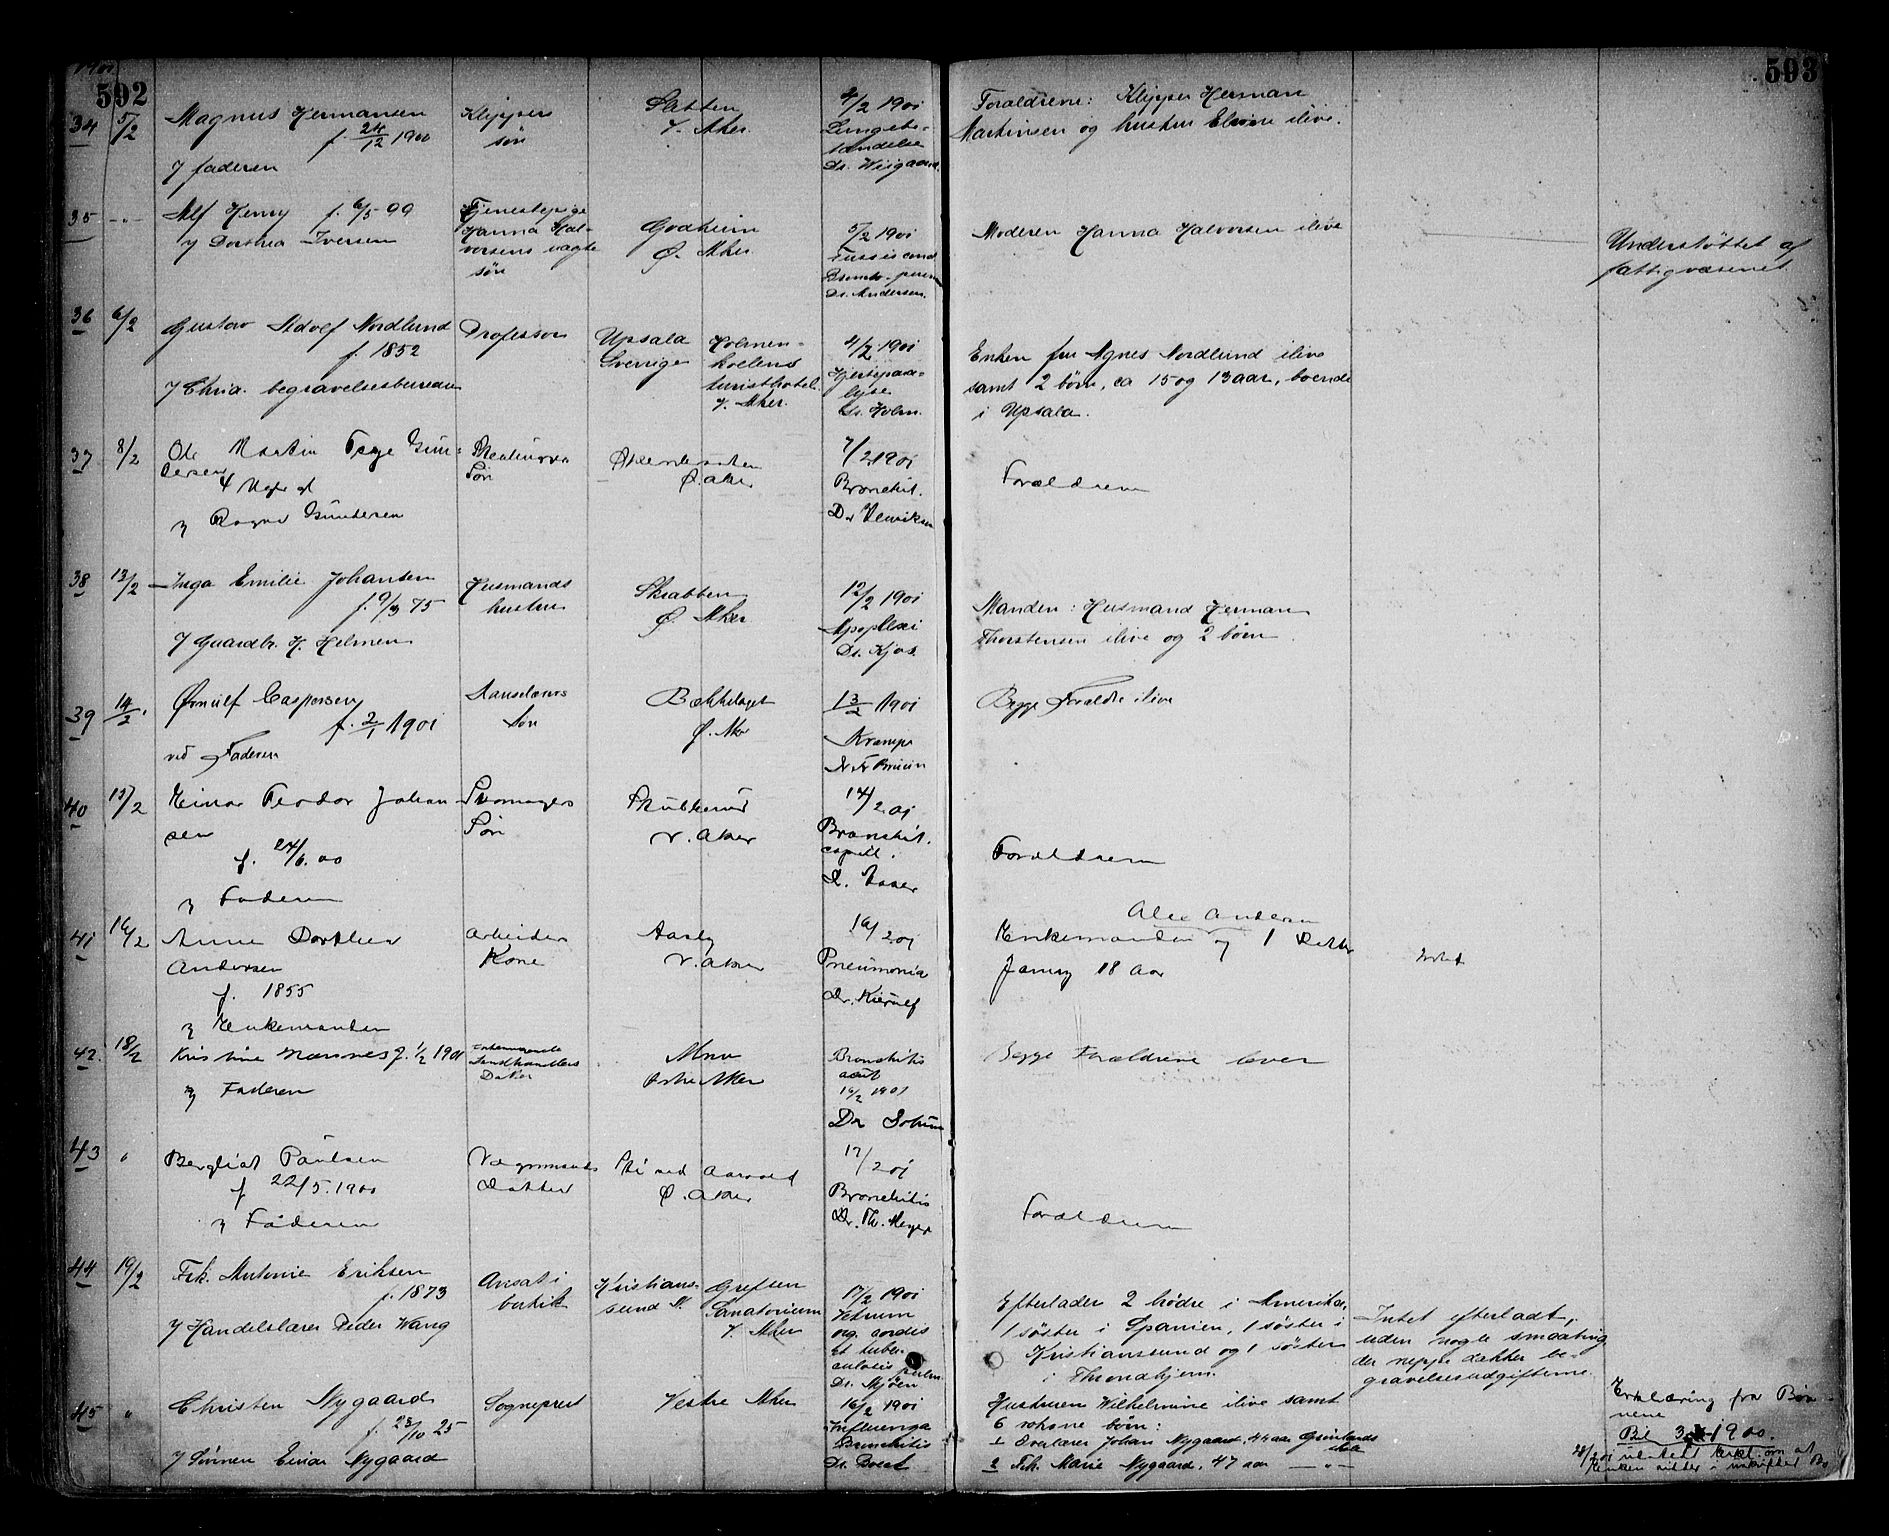 1901
592
593
34
5/2
Magnus Hermansen
f. 24/12 1900
v/ faderen
Klippers
søn
V. Aker
4/2 1901
Lungebe-
tændelse
Dr. Wisgaard
Forældrene: Klipper Herman
Martinsen og hustru Elvine ilive.
35
-"-
Alf Henry f. 6/5 99
v/ Dorthea Iversen
Tjenestepige
Hanna Hal-
vorsens uægte
søn
Godheim
Ø. Aker
5/2 1901
Tussis conv.
Dr. Andersen.
Moderen Hanna Halvorsen ilive
Understøttet af
fattigvæsenet
36
6/2
Gustav Adolf Nordlund
f. 1852
v/ Chria. begravelsesbureau
Professor
Upsala
Sverige
Holmen-
kollens
turisthotel.
V. Aker.
4/2 1901
Hjertepara-
lyse
Dr. Holm.
Enken fru Agnes Nordlund ilive
samt 2 børn, ca 15 og 13 aar, boende
i Upsala.
37
8/2
Ole Martin Gun-
dersen
v/ Ragna Gundersen
Søn
Ø. Aker
7/2 1901
Bronchit.
Dr Henriksen
Forældrene
38
13/2
Inga Emilie Johansen
f. 9/3 75
v/ Gaardbr. H. Helmen
Husmands
hustru
Skrabben
Ø. Aker
12/2 1901
Apoplexi
Dr. Kjos.
Manden: Husmand Herman
Thorstensen ilive og 2 børn.
39
14/2
Ørnulf Caspersen
f. 2/1 1901
ved Faderen
Søn
Bækkelaget
Ø. Aker
13/2 1901
Krampe
Begge Forældre ilive
40
15/2
Einar Teodor Johan-
sen
f. 24/6.00
v/ Faderen
Skomagers
Søn
V. Aker
14/2 01
Bronchit.
capill.
Forældrene
41
16/2
Anne Dorthea
Andersen
f. 1855
v/ Enkemanden
Arbeider
Kone
Aasly
V. Aker
16/2 01
Pneumonia
Dr. Kierulf
Andersen
Enkemanden og 1 Datter
Jenny 18 Aar
Intet
42.
18/2
Kristine Næsnes f. 1/2 1901
v/ Faderen
Landhandlers
Datter
Østre Aker
Bronchitis
acut
16/2 1901
Begge Forældrene lever
43
"
Bergliot Paulsen
f 22/5.1900
v/ Faderen
Datter
Ø. Aker
17/2 01
Bronchitis
Dr. Th. Meyer
Forældrene
44
19/2
Frk. Antonie Eriksen
f. 1873
v/ Handelslærer Peder Wang
Ansat i
butik
Kristians-
sund N.
Grefsen
Sanatorium
V. Aker
17/2 1901
Vitium
org. cordis
et tuber-
culosis pulm.
Dr. Mjøen
Efterlader 2 brødre i Amerika,
1 søster i Spanien, 1 søster i
Kristianssund og 1 søster
i Throndhjem.
Intet efterladt,
uden nogle smaating
der neppe dækker be-
gravelsesudgifterne.
45
"
Christen Nygaard
f. 23/10 25
v/ Sønnen Einar Nygaard
Sogneprest
Vestre Aker
16/2 1901
Influenza
Bronchitis
Dr. Boeck
Hustruen Wilhelmine ilive samt
6 voksne børn:
1 Overlærer Johan Nygaard, 49 aar
2 Frk. Marie Nygaard, 47 aar -"-
Erklæring fra Bør-
nene
Bil 3 1900.